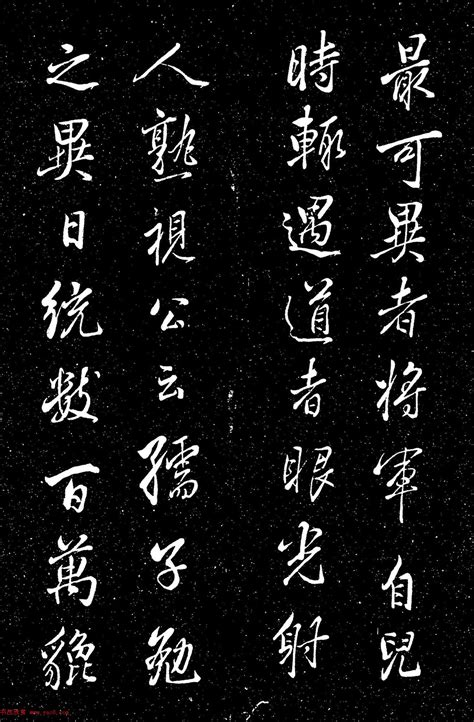 最可異者將軍自兒
時輒遇道者眼光射
人熟視公云孺子勉
之異日統數百萬貔